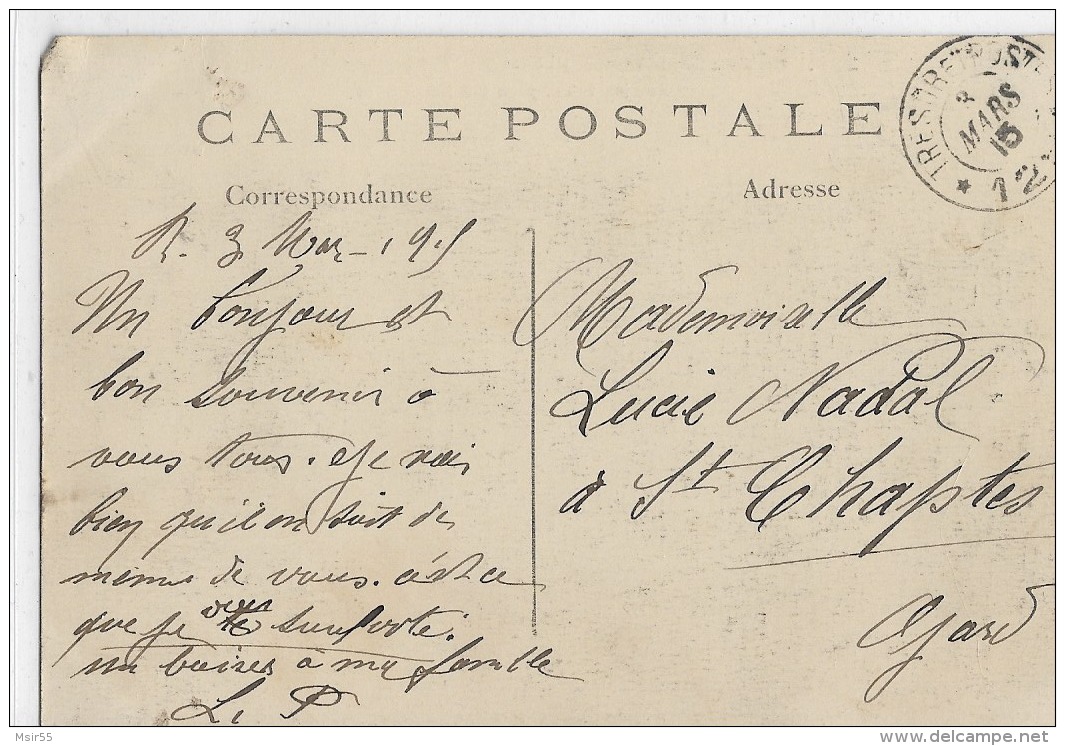 CARTE POSTALE
TRESOR ET POSTES
3
MARS
15
12
Correspondance
Adresse
3 Mars 1915
Un bonjour et
bon souvenir à
vous tous. Je vais
bien qu'il en soit de
meme de vous. c'est ce
que je vous
un baiser à ma famille
Le P
Mademoiselle
Lucie Nadal
à St Chaptes
Gard
Msir55
delcampe.net